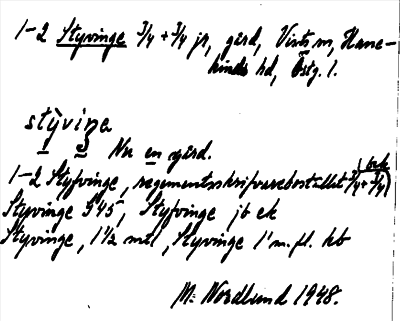 1-2 Styvinge 3/4 + 3/4 jr, gård, Vists sn, Hane-
kinds hd, Östg. l.
stỳvin̨e
Nu en gård.
1-2 Styfvinge, regementsskrifvarebostället 3/4 + 3/4 (
Styvinge G45, Styfvinge jb ek
Styvinge, 1 1/2 mtl, Styvinge 1' m. fl. kb
M. Nordlund 1948.